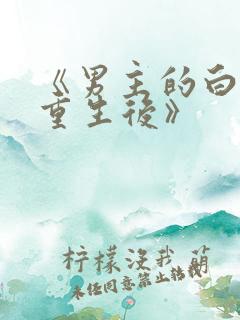 《男主的白
重生後》
柠檬没我萌
未经同意禁止转载